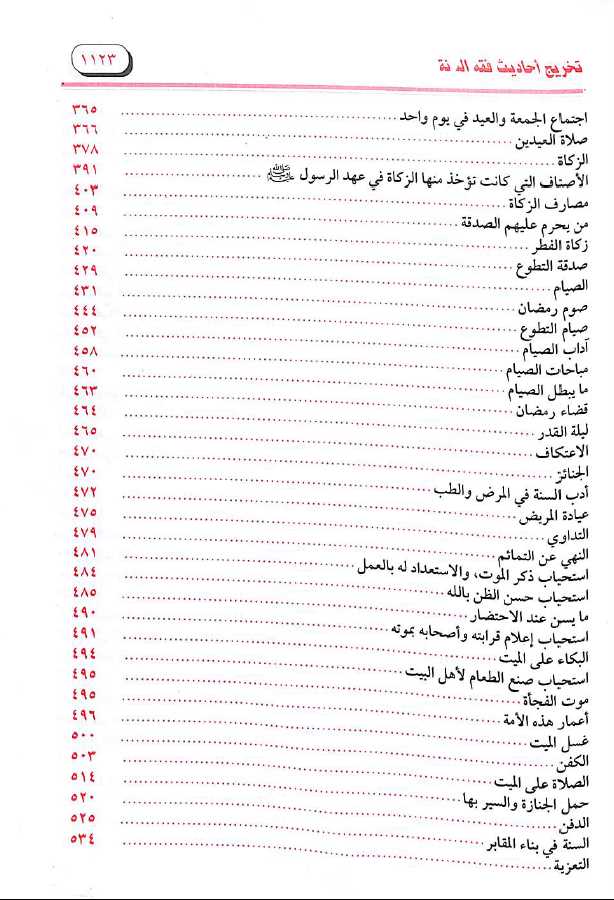 تخريج أحاديث فقه الـ نة ١١٢٣
اجتماع الجمعة والعيد في يوم واحد ........ ٣٦٥
صلاة العيدين ........ ٣٦٦
الزكاة ........ ٣٧٨
الأصناف التي كانت تؤخذ منها الزكاة في عهد الرسول ﷺ ........ ٣٩١
مصارف الزكاة ........ ٤٠٣
من يحرم عليهم الصدقة ........ ٤٠٩
زكاة الفطر ........ ٤١٥
صدقة التطوع ........ ٤٢٠
الصيام ........ ٤٢٩
صوم رمضان ........ ٤٣١
صيام التطوع ........ ٤٤٤
آداب الصيام ........ ٤٥٢
مباحات الصيام ........ ٤٥٨
ما يبطل الصيام ........ ٤٦٠
قضاء رمضان ........ ٤٦٣
ليلة القدر ........ ٤٦٤
الاعتكاف ........ ٤٦٥
الجنائز ........ ٤٧٠
أدب السنة في المرض والطب ........ ٤٧٠
عيادة المريض ........ ٤٧٢
التداوي ........ ٤٧٥
النهي عن التمائم ........ ٤٧٩
استحباب ذكر الموت، والاستعداد له بالعمل ........ ٤٨١
استحباب حسن الظن بالله ........ ٤٨٤
ما يسن عند الاحتضار ........ ٤٨٥
استحباب إعلام قرابته وأصحابه بموته ........ ٤٩٠
البكاء على الميت ........ ٤٩١
استحباب صنع الطعام لأهل البيت ........ ٤٩٤
موت الفجأة ........ ٤٩٥
أعمار هذه الأمة ........ ٤٩٥
غسل الميت ........ ٤٩٦
الكفن ........ ٥٠٠
الصلاة على الميت ........ ٥٠٣
حمل الجنازة والسير بها ........ ٥١٤
الدفن ........ ٥٢٠
السنة في بناء المقابر ........ ٥٢٥
التعزية ........ ٥٣٤